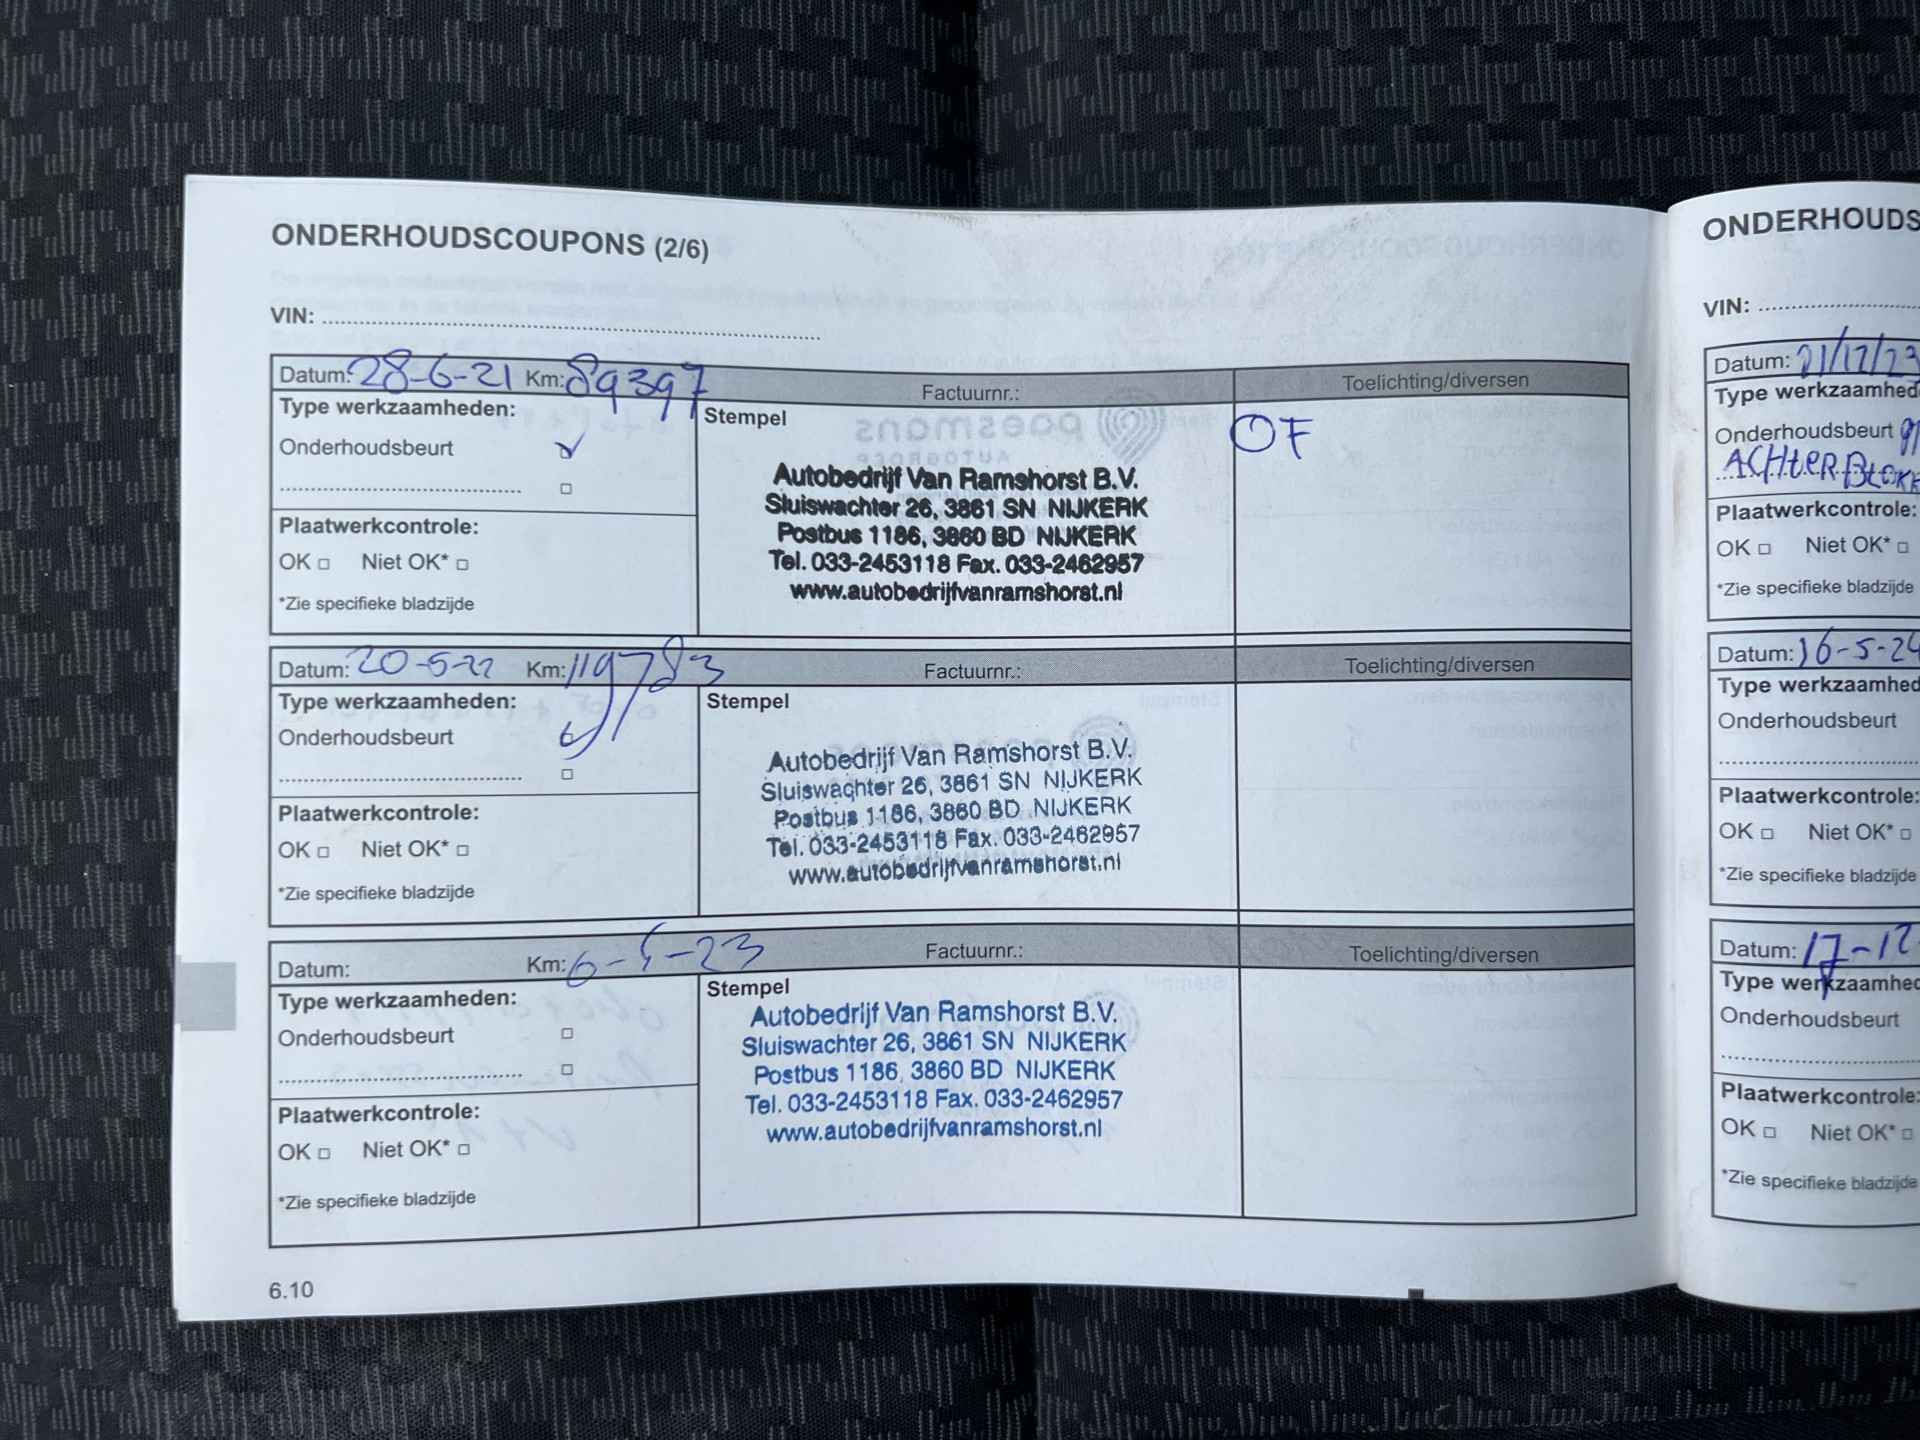 ONDERHOUDSCOUPONS (2/6)
VIN:
Datum: 28-6-21 Km: 89397 Factuurnr.: Toelichting/diversen
Type werkzaamheden:
Stempel
OF
Onderhoudsbeurt
Autobedrijf Van Ramshorst B.V.
Sluiswachter 26, 3861 SN NIJKERK
Postbus 1186, 3860 BD NIJKERK
Tel. 033-2453118 Fax. 033-2462957
www.autobedrijfvanramshorst.nl
Plaatwerkcontrole:
OK Niet OK*
*Zie specifieke bladzijde
Datum: 20-5-22 Km: 119783 Factuurnr.: Toelichting/diversen
Type werkzaamheden:
Stempel
Onderhoudsbeurt
Autobedrijf Van Ramshorst B.V.
Sluiswachter 26, 3861 SN NIJKERK
Postbus 1186, 3860 BD NIJKERK
Tel. 033-2453118 Fax. 033-2462957
www.autobedrijfvanramshorst.nl
Plaatwerkcontrole:
OK Niet OK*
*Zie specifieke bladzijde
Datum: Km: 6-5-23 Factuurnr.: Toelichting/diversen
Type werkzaamheden:
Stempel
Onderhoudsbeurt
Autobedrijf Van Ramshorst B.V.
Sluiswachter 26, 3861 SN NIJKERK
Postbus 1186, 3860 BD NIJKERK
Tel. 033-2453118 Fax. 033-2462957
www.autobedrijfvanramshorst.nl
Plaatwerkcontrole:
OK Niet OK*
*Zie specifieke bladzijde
6.10
ONDERHOUDS
VIN:
Datum: 21/12/23
Type werkzaamhed
Onderhoudsbeurt
ACHTERBLOKK
Plaatwerkcontrole:
OK Niet OK*
*Zie specifieke bladzijde
Datum: 16-5-24
Type werkzaamhed
Onderhoudsbeurt
Plaatwerkcontrole:
OK Niet OK*
*Zie specifieke bladzijde
Datum: 17-12
Type werkzaamhed
Onderhoudsbeurt
Plaatwerkcontrole:
OK Niet OK*
*Zie specifieke bladzijde